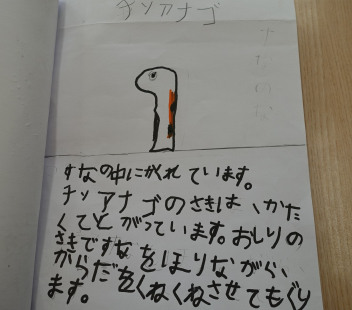 チンアナゴ
すなの中にかくれています。
チンアナゴのさきは、かた
くてとがっています。おしりの
さきですなをほりながら、
からだをくねくねさせてもぐり
ます。